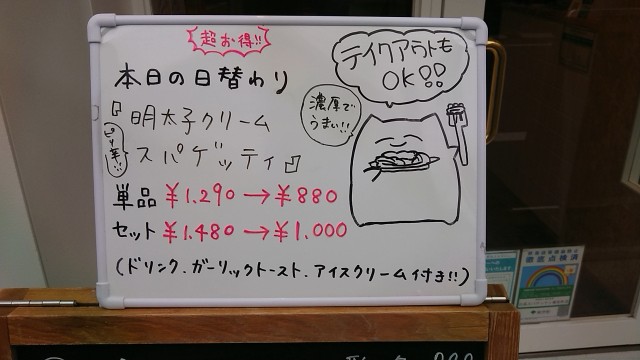 超お得!!
テイクアウトも
OK!!
本日の日替わり
濃厚で
うまい!!
『明太子クリーム
ピリ辛!!
スパゲッティ』
単品 ¥1.290→¥880
セット ¥1.480→¥1.000
(ドリンク.ガーリックトースト.アイスクリーム付き!!)
徹底点検済